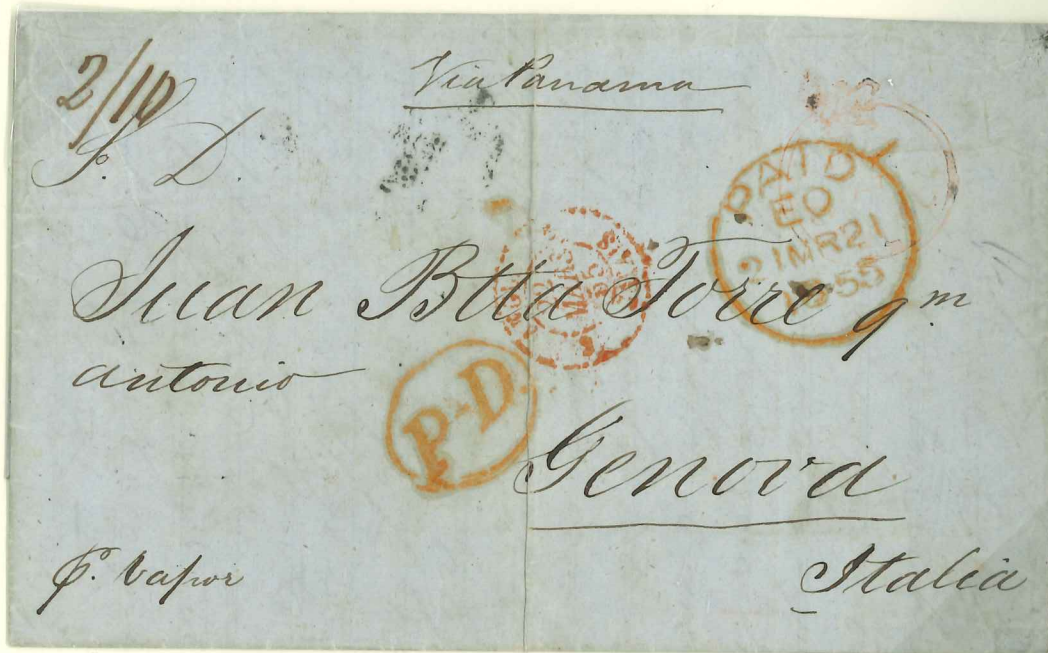 2/10
Via Panama
S. D.
PAID
EO
21MR21
1855
Juan Btta Torre qm
antonio
P.D.
Genova
Italia
p. Vapor